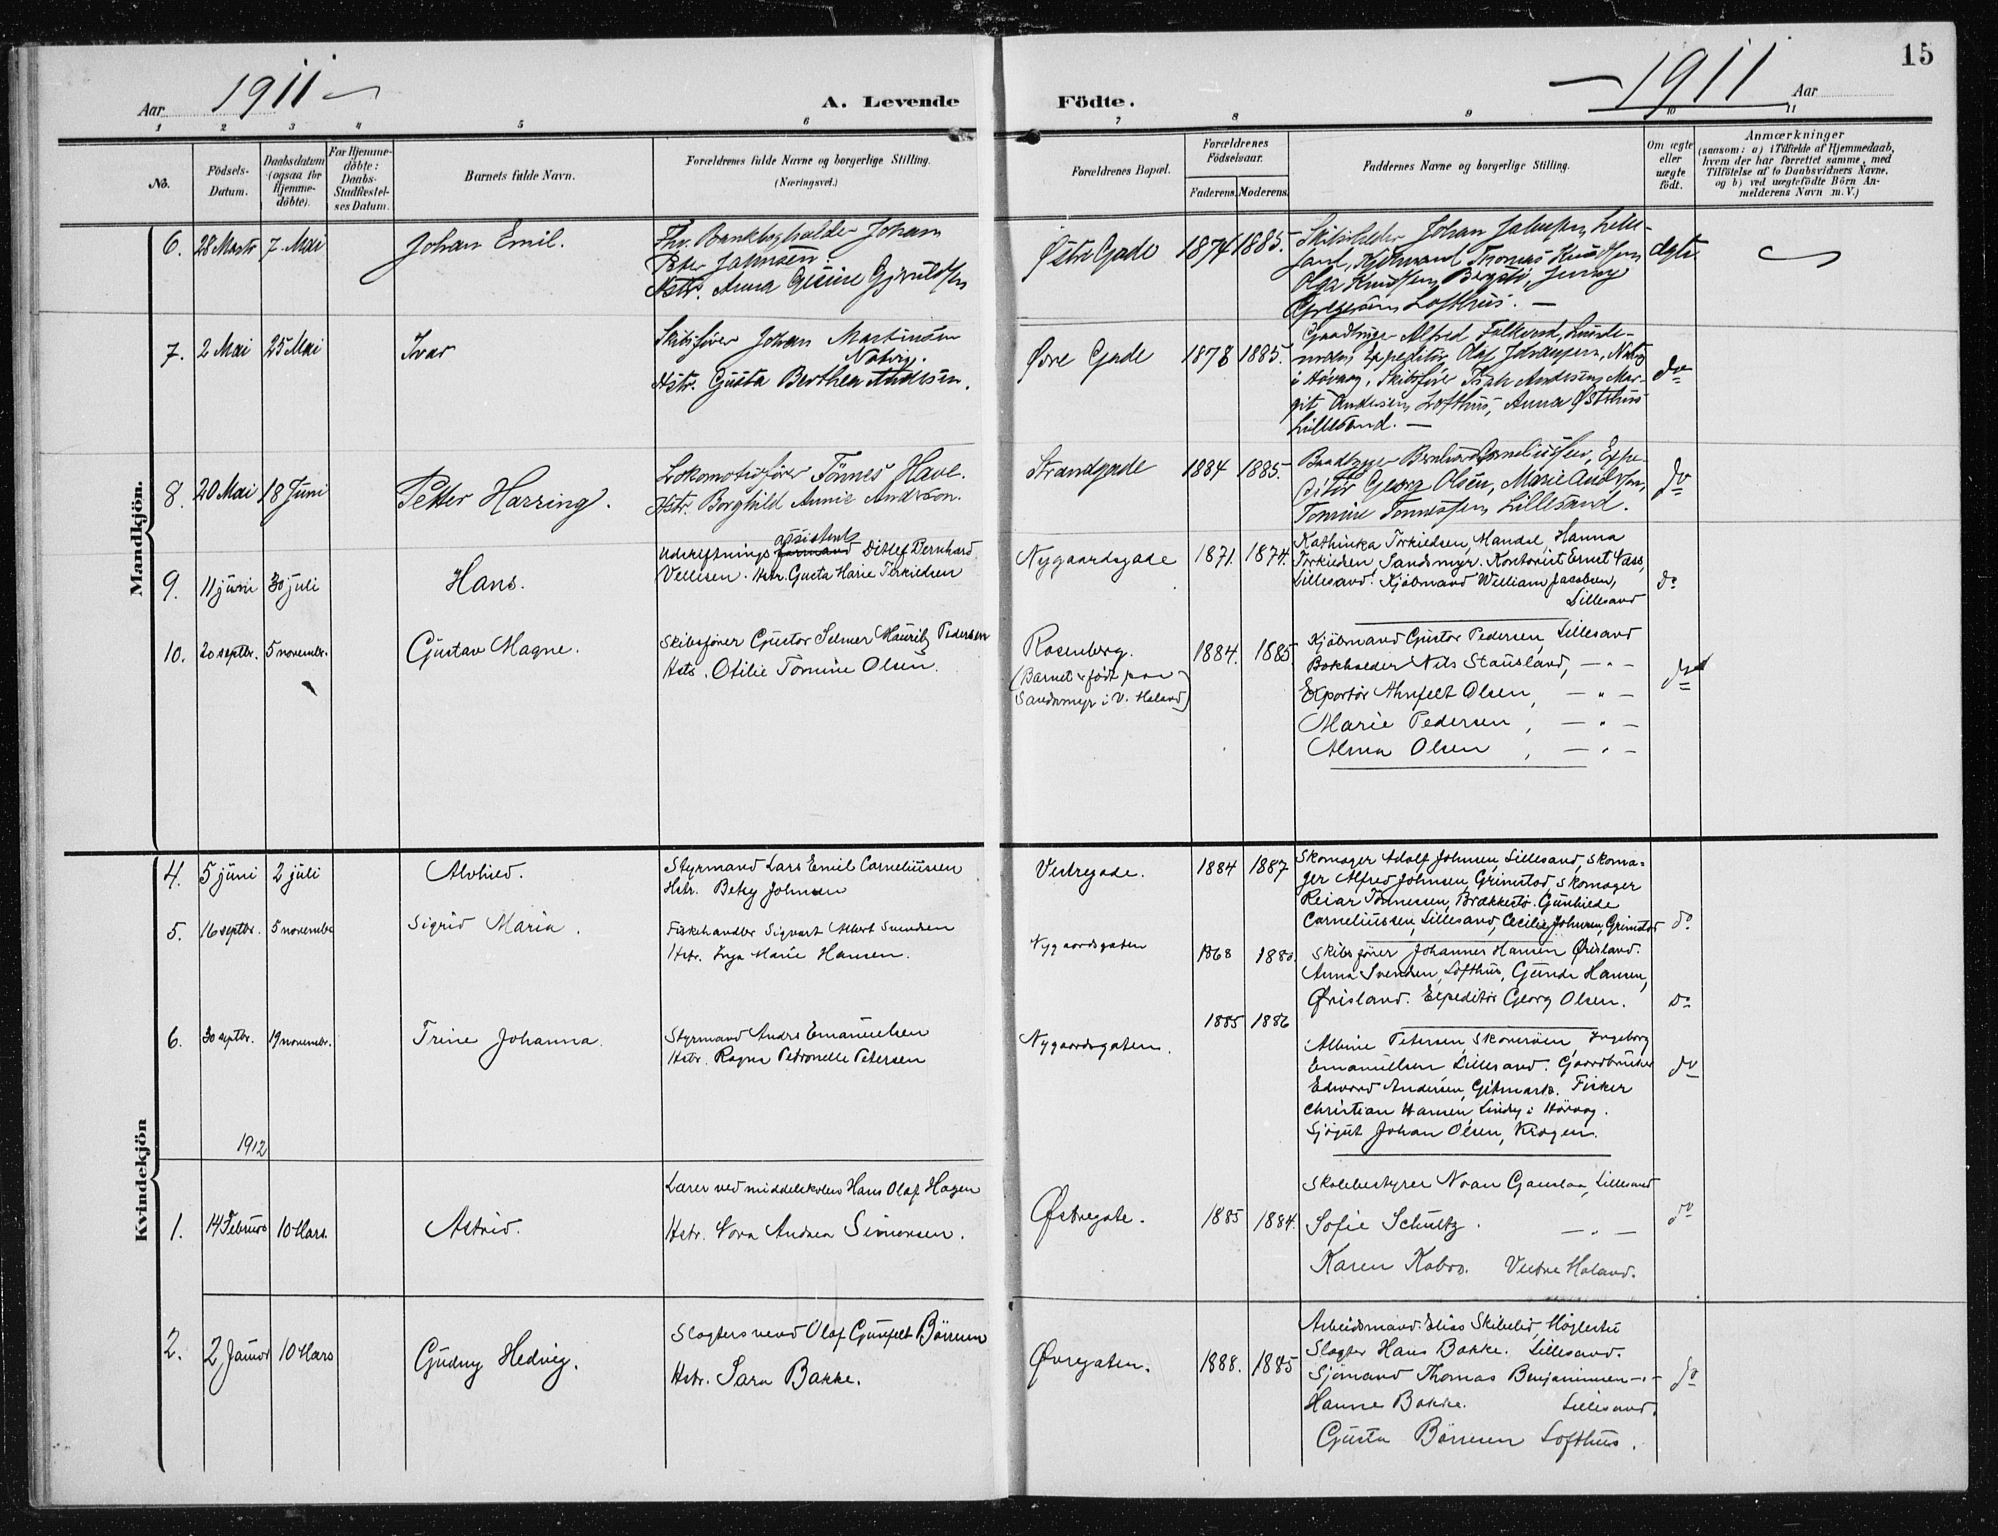 15
Aar 1911
A. Levende Födte.
1911 Aar
1 2 3 4 5 6 7 8 9 10 11
No.
Födsels-
Datum.
Daabsdatum
(ogsaa for
Hjemme-
döbte).
For Hjemme-
döbte:
Daabs-
Stadfæstel-
ses Datum.
Barnets fulde Navn.
Forældrenes fulde Navne og borgerlige Stilling.
(Næringsvei.)
Forældrenes Bopæl.
Forældrenes
Födselsaar.
Faderens. Moderens.
Faddernes Navne og borgerlige Stilling.
Om ægte
eller
uægte
födt.
Anmærkninger
(saasom: a) i Tilfælde af Hjemmedaab,
hvem der har forrettet samme, med
Tilföielse af to Daabsvidners Navne,
og b) ved uægtefödte Börn An-
melderens Navn m. V.)
Mandkjön.
6. 28 Marts 7 Mai
Johan Emil.
Fhv. Bankbogholder Johan
Peter Johnsen.
Hstr. Anna Gesine
Østre Gade
1874 1885.
Johan Johnsen, Lille-
sand, Kjöbmand Thomas Knudsen,
Olga Knudsen, Jenny
Lofthus. —
ægte
7. 2 Mai 25 Mai
Ivar
Skibsförer Johan Martinsen
Notvig.
Hstr. Gusta Berthea Andersen.
Øvre Gade
1878 1885.
Alfred Falkevid,
Expeditör Olaf Johansen,
i Høvaag, Skibsförer Isak Andersen, Mar-
git Andersen, Lofthus, Anna Østhus
Lillesand. —
do
8. 20 Mai 18 Juni
Petter Harring.
Lokomotivförer Tönnes Have.
Hstr. Borghild Annie Andersen.
Strandgade
1884 1885.
Baadbygger Bernhard Corneliussen, Expe-
ditör Georg Olsen, Marie Andersen,
Tomine Tönnesen, Lillesand.
do
9. 11 juni 30 juli
Hans.
assistent
Udskiftningsformand Ditlef Bernhard
Vellesen. Hstr. Gusta Marie Terkildsen
Nygaardsgade
1871. 1874.
Kathinka Torkildsen, Mandal, Hanna
Torkildsen Sandsmyr. Kontorist Ernst Vass,
Lillesand. Kjöbmand William Jacobsen,
Lillesand
do
10. 20 septbr. 5 novembr.
Gustav Magne.
Skibsförer Gustav Selmer Mauritz Pedersen
Hstr. Otilie Tomine Olsen.
Rosenberg.
(Barnet er födt paa
Sandsmyr i V. Moland)
1884. 1885.
Kjöbmand Gustav Pedersen, Lillesand
Bokholder Nils Stausland, — " —
Exportör Ahnfelt Olsen, — " —
Marie Pedersen, — " —
Alma Olsen, — " —
do
Kvindekjön
4. 5 juni 2 juli
Alvhild.
Styrmand Lars Emil Corneliussen
Hstr. Betsy Johnsen
Vestregade.
1884 1887
Skomager Adolf Johnsen, Lillesand, Skoma-
ger Alfred Johnsen, Grimstad, Skomager
Reiar Tönnessen, Brækkestö. Gunhilde
Corneliussen, Lillesand, Cecilie Johnsen, Grimstad
do
5. 16 septbr. 5 november
Sigrid Maria.
Fiskehandler Sigvart Albert Svendsen
Hstr. Inga Marie Hansen.
Nygaardsgaten
1868 1880.
Skibsförer Johannes Hansen Ørisland.
Anna Svendsen, Lofthus, Gunda Hansen,
Ørisland. Expeditör Georg Olsen.
do
6. 30 septbr. 19 novembr.
Trine Johanna.
Styrmand Andre Emanuelsen
Hstr. Ragna Petronelle Petersen
Nygaardsgaten.
1885 1886
Albine Petersen, Skoveröen Ingeborg
Emanuelsen Lillesand. Gaardbruker
Edward Andersen, Gitmark. Fisker
Christian Hansen, Lindö i Hövag.
Sjögut Johan Olsen, Kragen.
do
1912
1. 14 Februar 10 Mars.
Astrid.
Lærer ved middelskolen Hans Olaf Hagen
Hstr. Nora Andrea Simonsen.
Østregate.
1885 1884.
Skolebestyrer Noan Gauslaa, Lillesand
Sofie Schultz. — " —
Karen Kobro. Vestre Moland.
do
2. 2 Januar 10 Mars
Gudny Hedvig.
Slagtersvend Olaf Gunfelt Börresen
Hstr. Sara Bakke.
Øvregaten.
1888. 1885
Arbeidsmand Elias Skibelid,
Slagter Hans Bakke. Lillesand.
Sjömand Thomas Benjaminsen — " —
Hanne Bakke. Lillesand.
Gusta Börresen Lofthus.
do